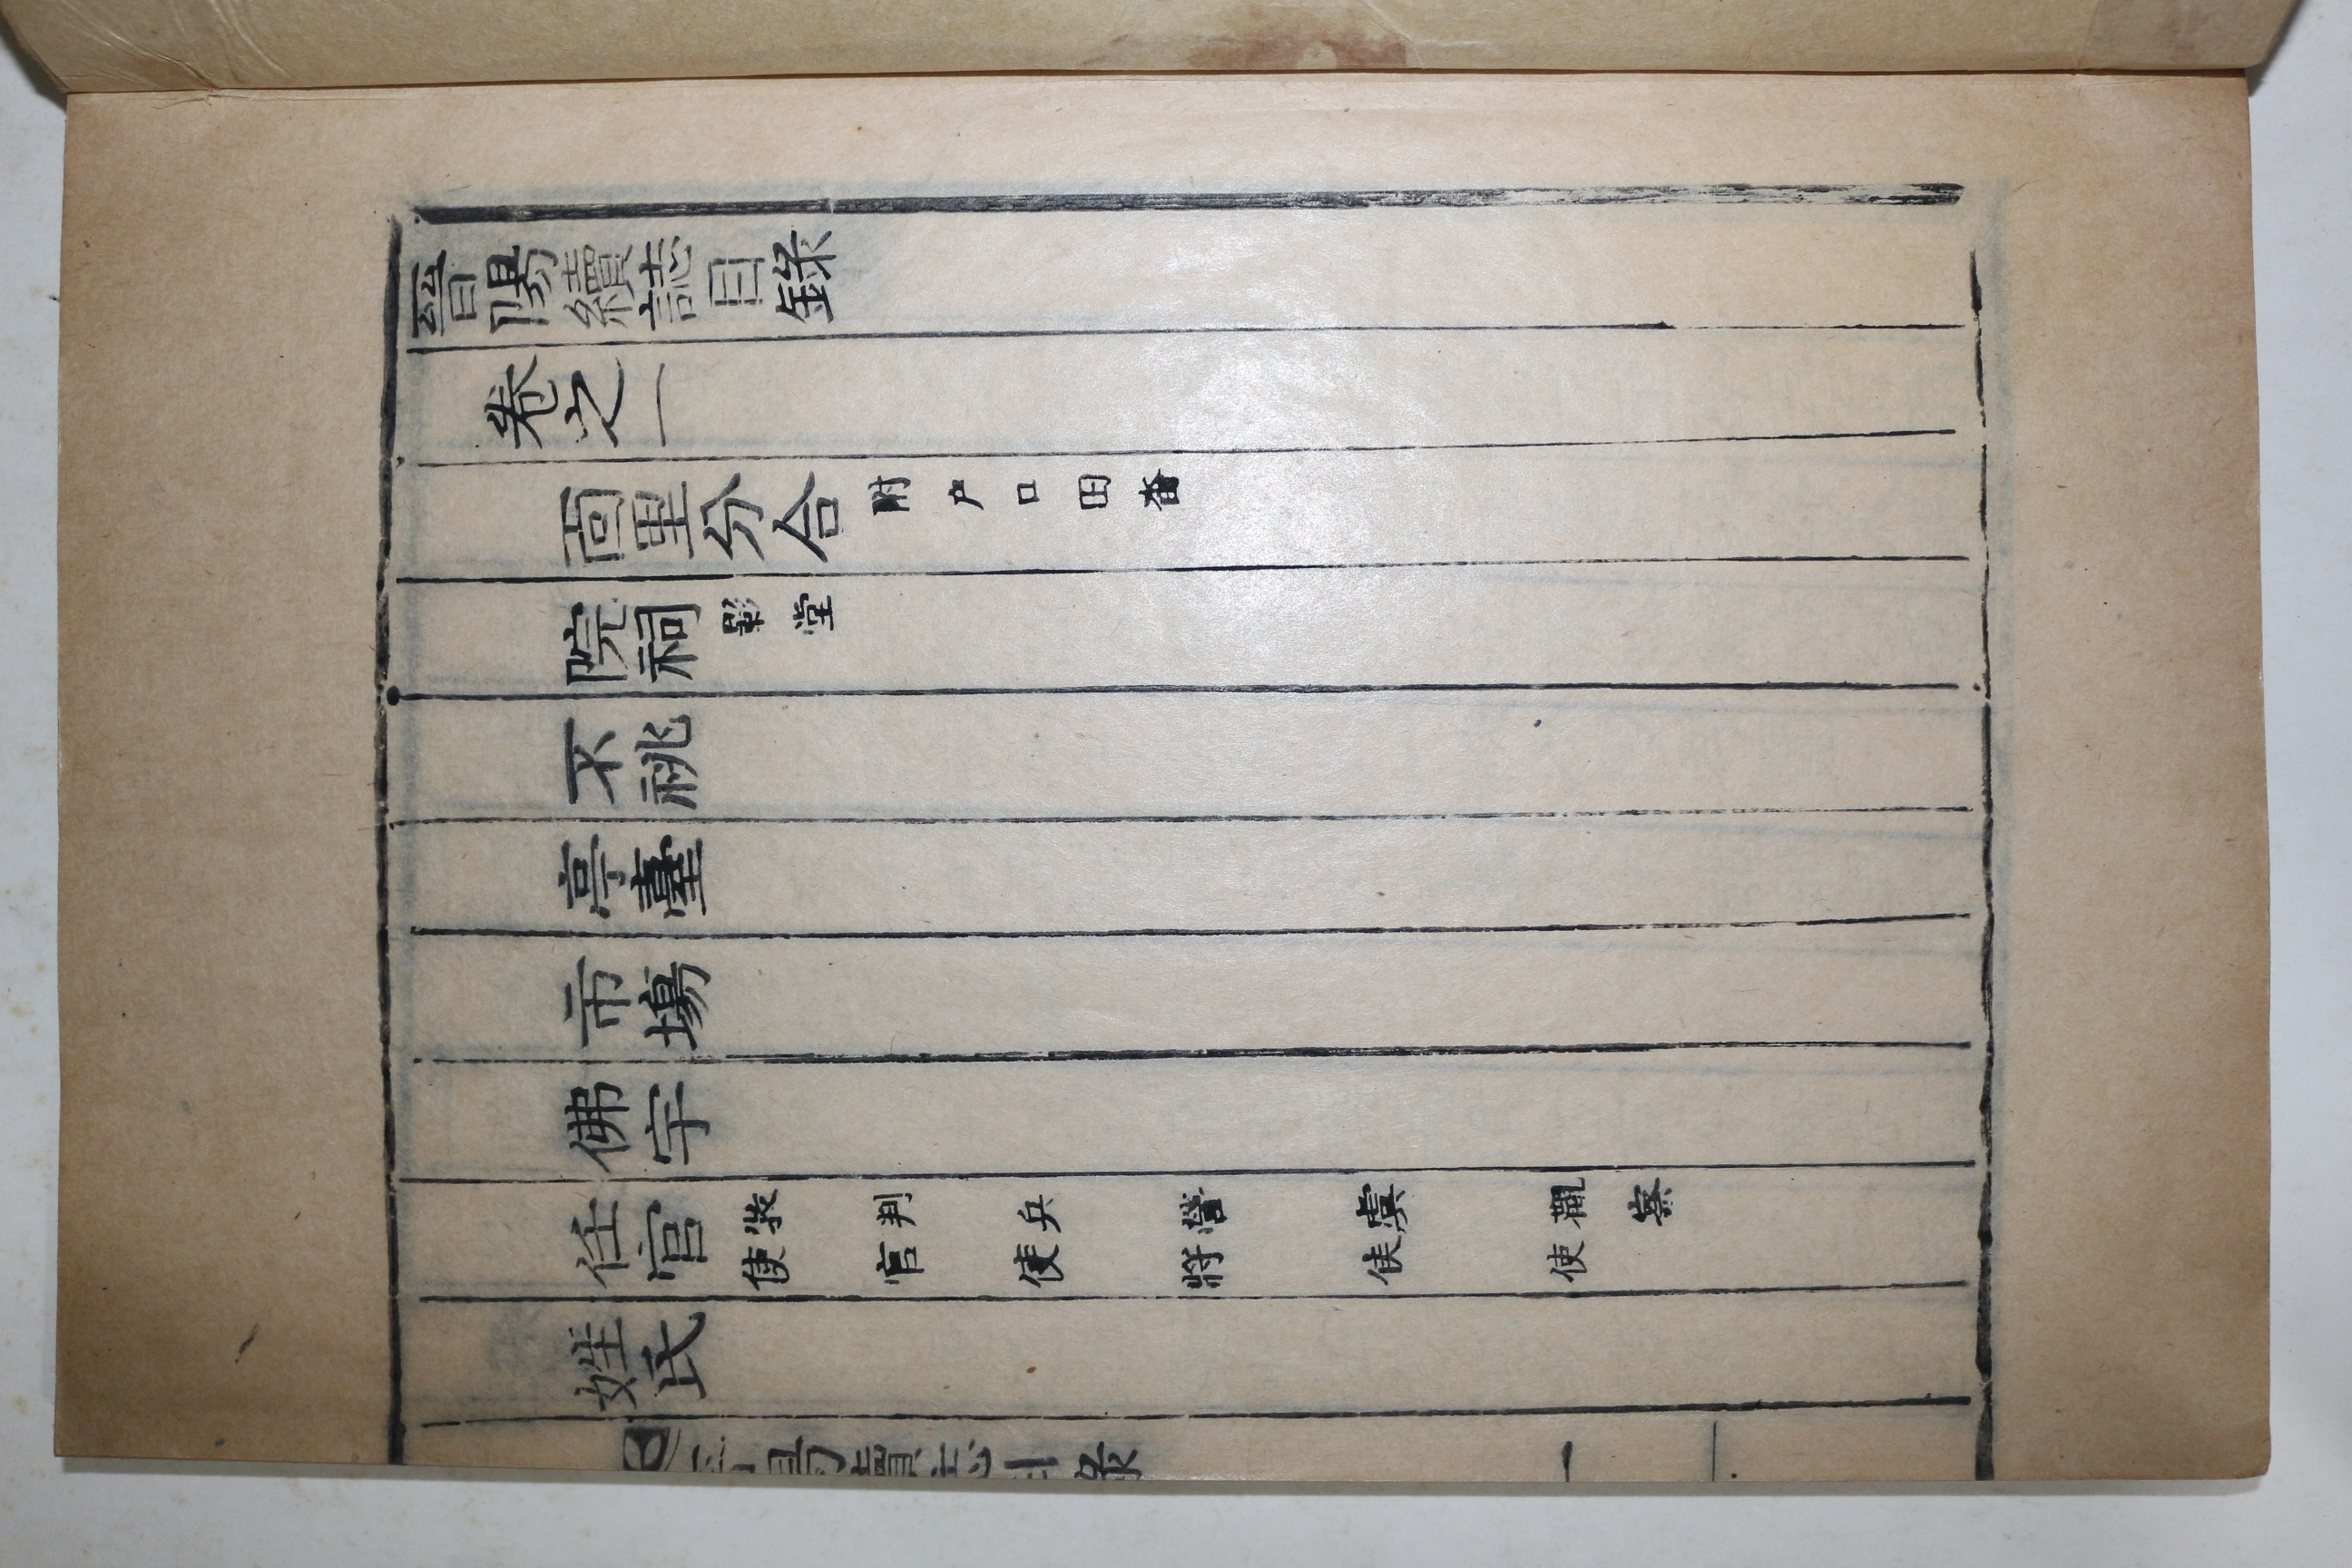 晉陽續誌目錄
卷之一
面里分合 附户口田畓
院祠 影堂
不祧
亭臺
市塲
佛宇
任官 牧使 判官 兵使 營將 虞侯 觀察使
姓氏
晉陽續誌目錄 一